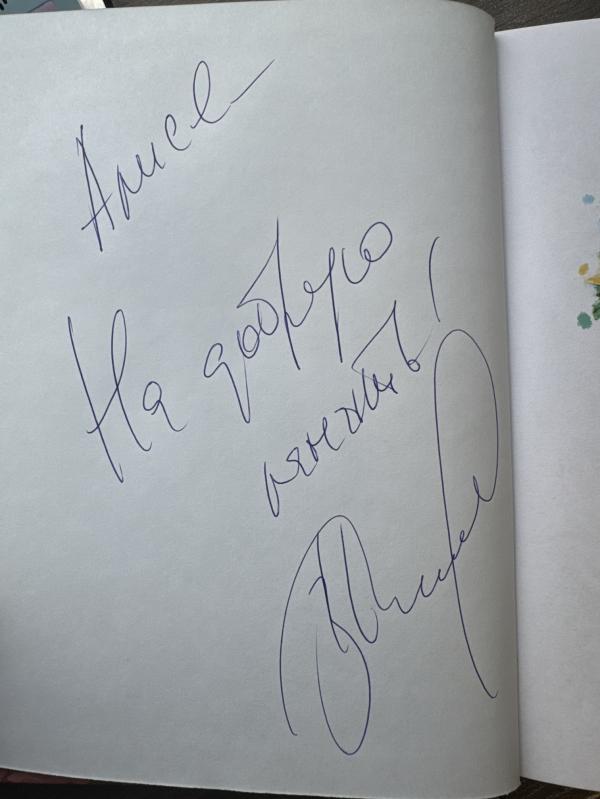 Алисе
На добрую
память!